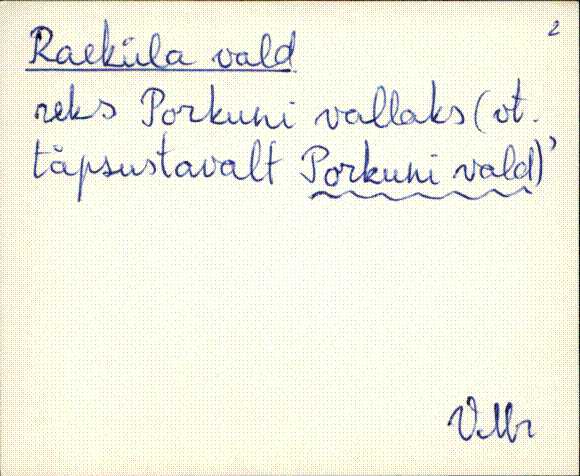 2
Raeküla vald
reks Porkuni vallaks (vt.
täpsustavalt Porkuni vald)'